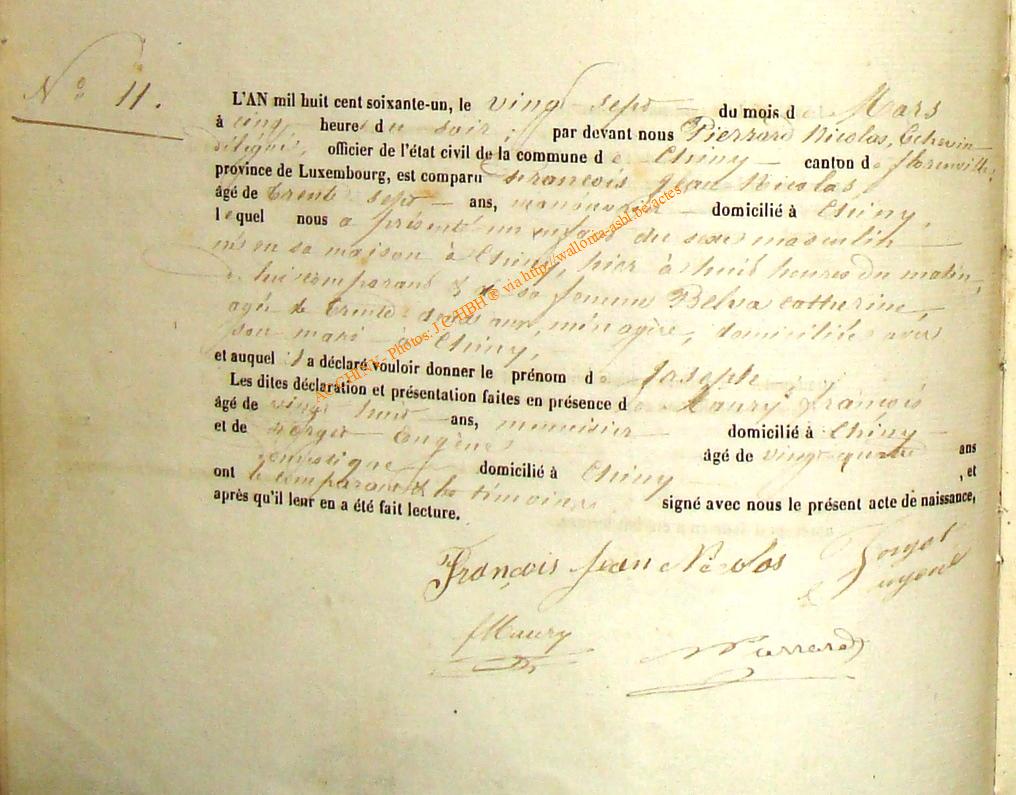 N° 11.
L'AN mil huit cent soixante-un, le vingt sept du mois de Mars
à cinq heures du soir, par devant nous Pierrard Nicolas, Echevin
délégué, officier de l'état civil de la commune de Chiny canton de florenville,
province de Luxembourg, est comparu François Jean Nicolas,
âgé de Trente sept ans, manouvrier domicilié à Chiny,
lequel nous a présenté un enfant du sexe masculin
né en sa maison à Chiny, hier à huit heures du matin,
de lui comparant & de sa femme Belva Catherine,
agée de Trente deux ans, ménagère, domiciliée avec
son mari à Chiny,
et auquel il a déclaré vouloir donner le prénom de Joseph
Les dites déclaration et présentation faites en présence de Maury françois
âgé de vingt huit ans, menuisier domicilié à Chiny
et de Eugène âgé de vingt quatre ans
domestique domicilié à Chiny , et
ont le comparant & les témoins signé avec nous le présent acte de naissance,
après qu'il leur en a été fait lecture.
François Jean Nicolas
fMaury
Archives CHINY - Photos: J C HBH ® via http://wallonia-asbl.be/actes